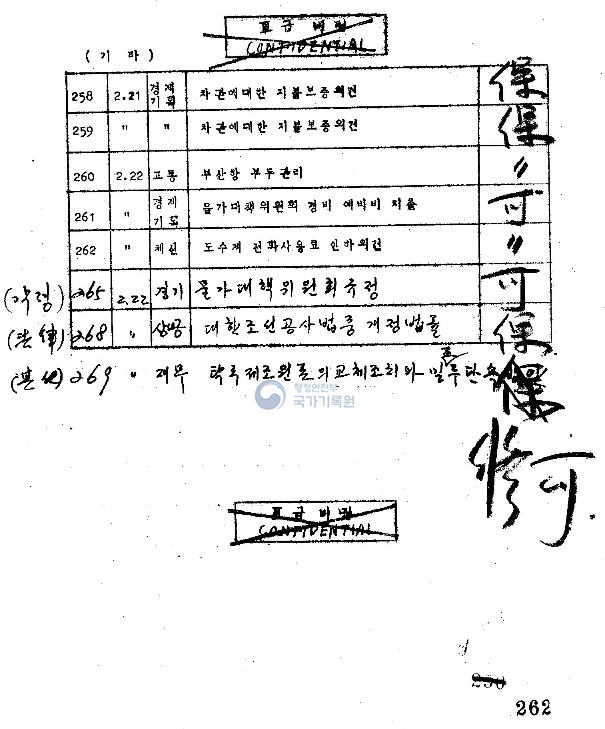 Ⅲ급 비밀
CONFIDENTIAL
( 기 타 )
258 2.21 경제기획 차관에대한 지불보증의건 保
259 " " 차관에대한 지불보증의건 保
260 2.22 교통 부산항 부두관리 "
261 " 경제기획 물가대책위원회 경비 예비비 지출 可
262 " 체신 도수제 전화사용료 인하의건 "
265 2.22 경기 물가대책위원회규정 可
(法律) 268 " 상공 대한조선공사법중개정법률 保
(其他) 269 " 재무
행정안전부
국가기록원
保
可
Ⅲ급 비밀
CONFIDENTIAL
250
262